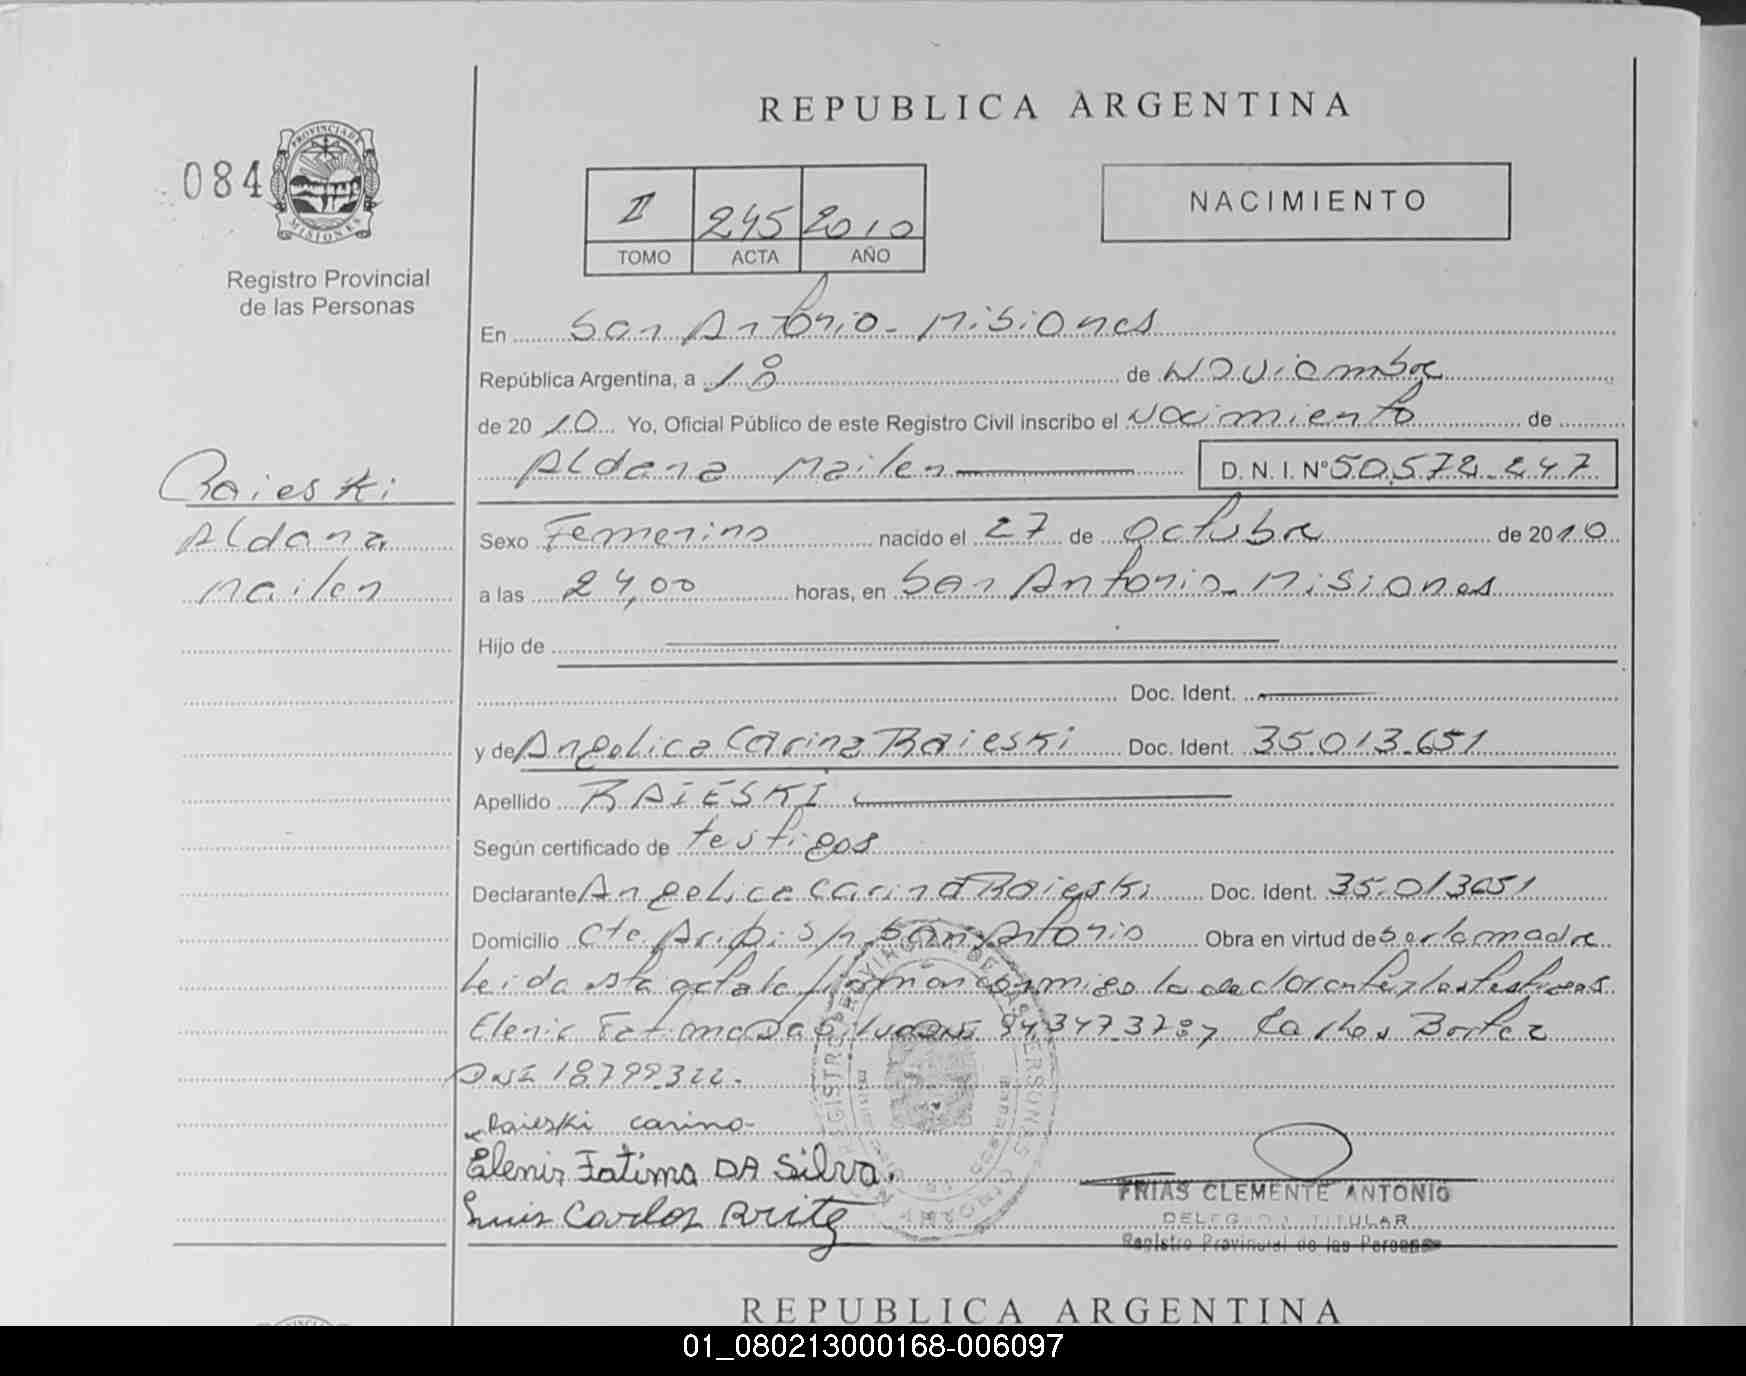 REPUBLICA ARGENTINA
084
PROVINCIA DE
MISIONES
Registro Provincial
de las Personas
II 245 2010
TOMO ACTA AÑO
NACIMIENTO
En San Antonio - Misiones
República Argentina, a 18 de Noviembre
de 2010 Yo, Oficial Público de este Registro Civil inscribo el Nacimiento de
Aldana Mailen D.N.I. Nº 50.572.247
Raieski
Aldana
Mailen
Sexo Femenino nacido el 27 de Octubre de 2010
a las 24,00 horas, en San Antonio - Misiones
Hijo de
Doc. Ident.
y de Angelica Carina Raieski Doc. Ident. 35.013.651
Apellido RAIESKI
Según certificado de testigos
Declarante Angelica Carina Raieski Doc. Ident. 35.013651
Domicilio Cte Aripi S/n San Antonio Obra en virtud de ser la madre
Leida esta acta la firman conmigo la declarante y los testigos
Elenir Fatima Da Silva DNI 94347378 y Carlos
DNI 18799322.
Raieski carina
Elenir Fatima DA Silva.
Luis Carlos Britez
FRIAS CLEMENTE ANTONIO
DELEGADO TITULAR
Registro Provincial de las Personas
REPUBLICA ARGENTINA
01_080213000168-006097